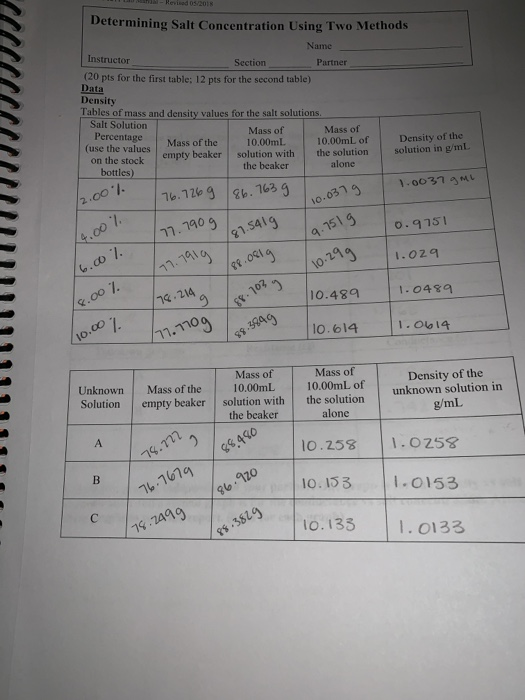 Revised 05/2018
Determining Salt Concentration Using Two Methods
Name
Instructor Section Partner
(20 pts for the first table; 12 pts for the second table)
Data
Density
Tables of mass and density values for the salt solutions.
Salt Solution Percentage (use the values on the stock bottles) Mass of the empty beaker Mass of 10.00mL solution with the beaker Mass of 10.00mL of the solution alone Density of the solution in g/mL
2.00% 76.726g 86.763g 10.037g 1.0037 g mL
4.00% 77.790g 87.541g 9.751g 0.9751
6.00% 77.791g 88.081g 10.29g 1.029
8.00% 78.214g 88.703g 10.489 1.0489
10.00% 77.770g 88.384g 10.614 1.0614
Unknown Solution Mass of the empty beaker Mass of 10.00mL solution with the beaker Mass of 10.00mL of the solution alone Density of the unknown solution in g/mL
A 78.222g 88.480 10.258 1.0258
B 76.767g 86.920 10.153 1.0153
C 78.249g 88.382g 10.133 1.0133